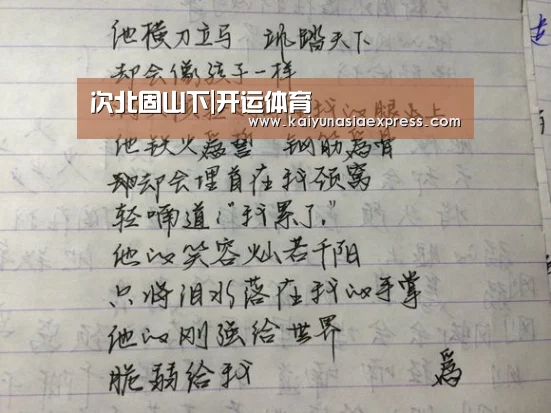 他横刀立马 跳踏天下
却会像孩子一样
次北固山下|开运体育
我的腿上
www.kaiyunasiaexpress.com
他铁火为誓 钢筋为骨
却会埋首在我颈窝
轻喃道:“我累了。”
他的笑容灿若千阳
只将泪水落在我的手掌
他的刚强给世界
脆弱给我
爲